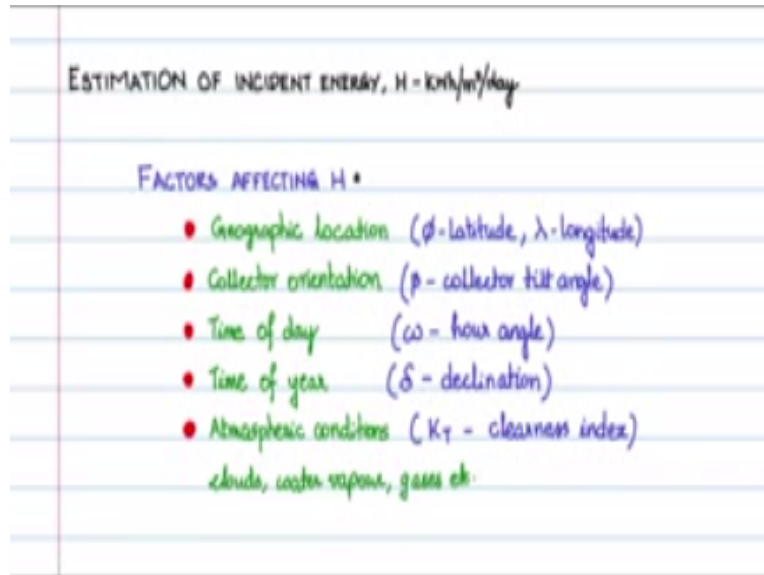 ESTIMATION OF INCIDENT ENERGY, H - kWh/m²/day
FACTORS AFFECTING H
• Geographic location (φ-latitude, λ-longitude)
• Collector orientation (β - collector tilt angle)
• Time of day (ω - hour angle)
• Time of year (δ - declination)
• Atmospheric conditions (K_T - clearness index)
clouds, water vapour, gases etc.